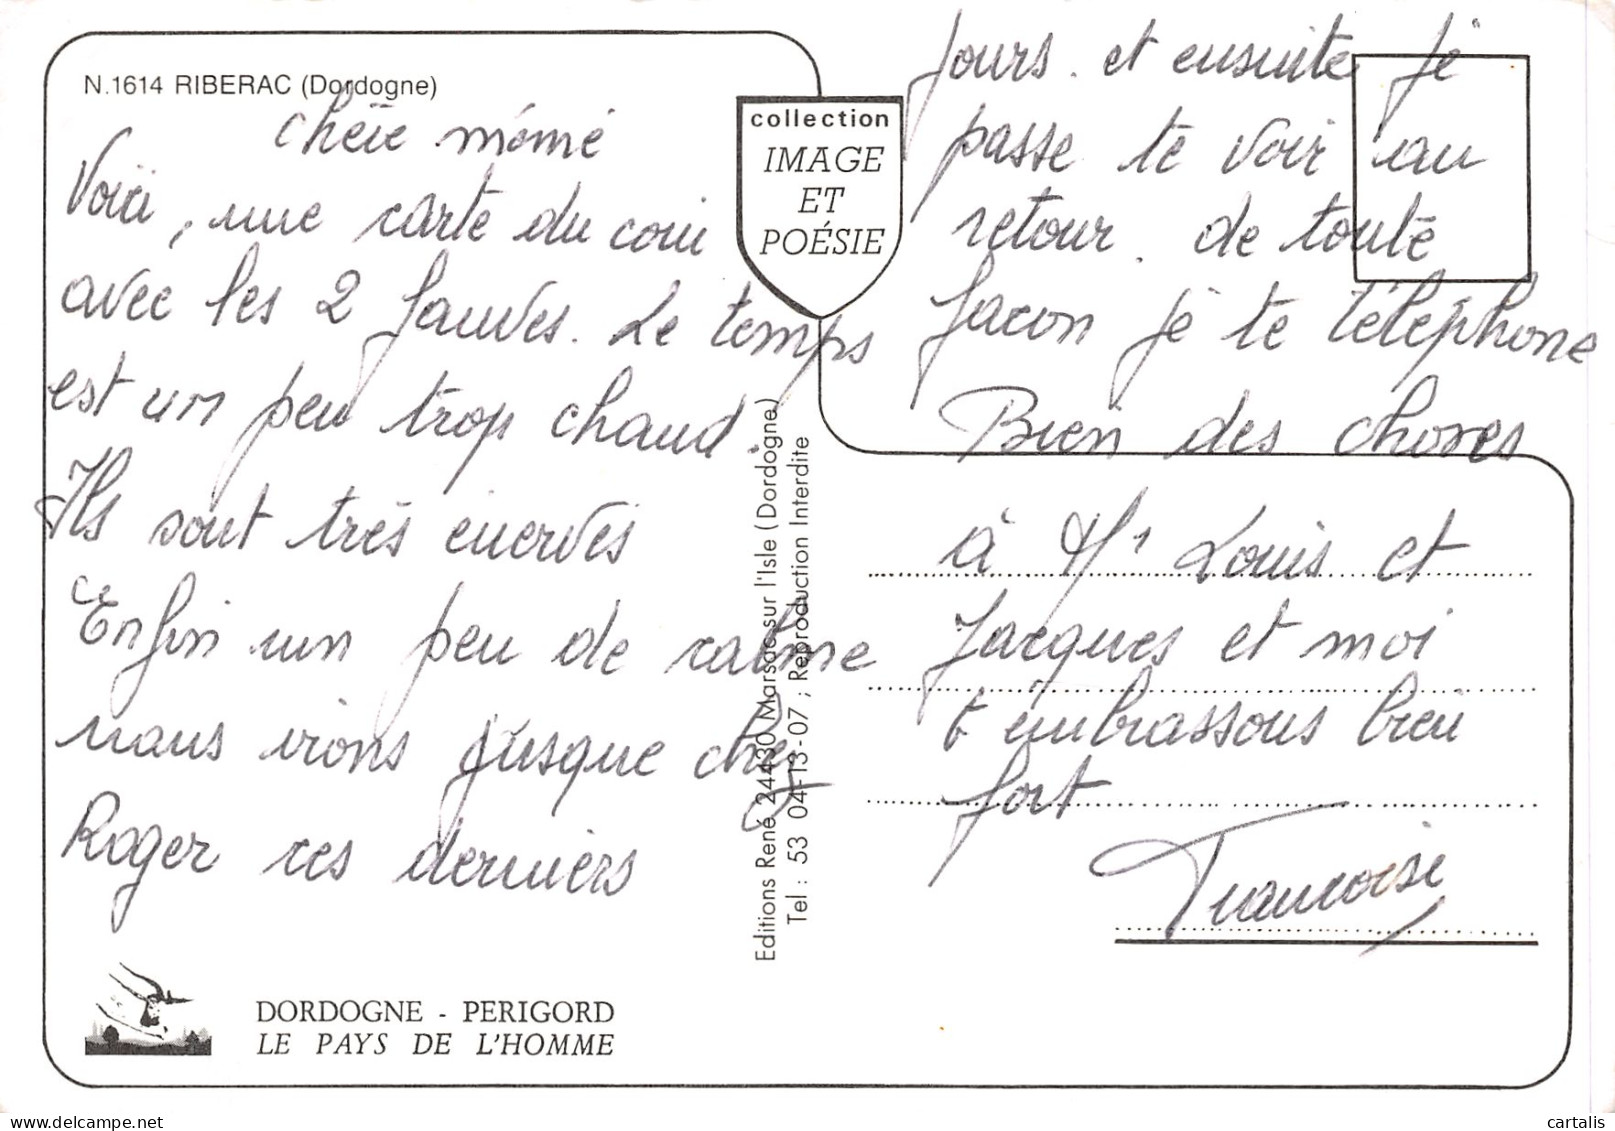 N.1614 RIBERAC (Dordogne)
chère mémé
Voici, une carte du coin
avec les 2 fauves. Le temps
est un peu trop chaud.
Ils sont très enervés
Enfin un peu de calme
nous irons jusque chez
Roger ces derniers
DORDOGNE - PERIGORD
LE PAYS DE L'HOMME
collection
IMAGE
ET
POÉSIE
Editions René 24430 Marsac sur l'Isle (Dordogne)
Tel : 53 04-13-07 ; Reproduction Interdite
jours. et ensuite je
passe te voir au
retour. de toute
facon je te téléphone
Bien des choses
à Mr Louis et
Jacques et moi
t'embrassons bien
fort
Francoise
cartalis